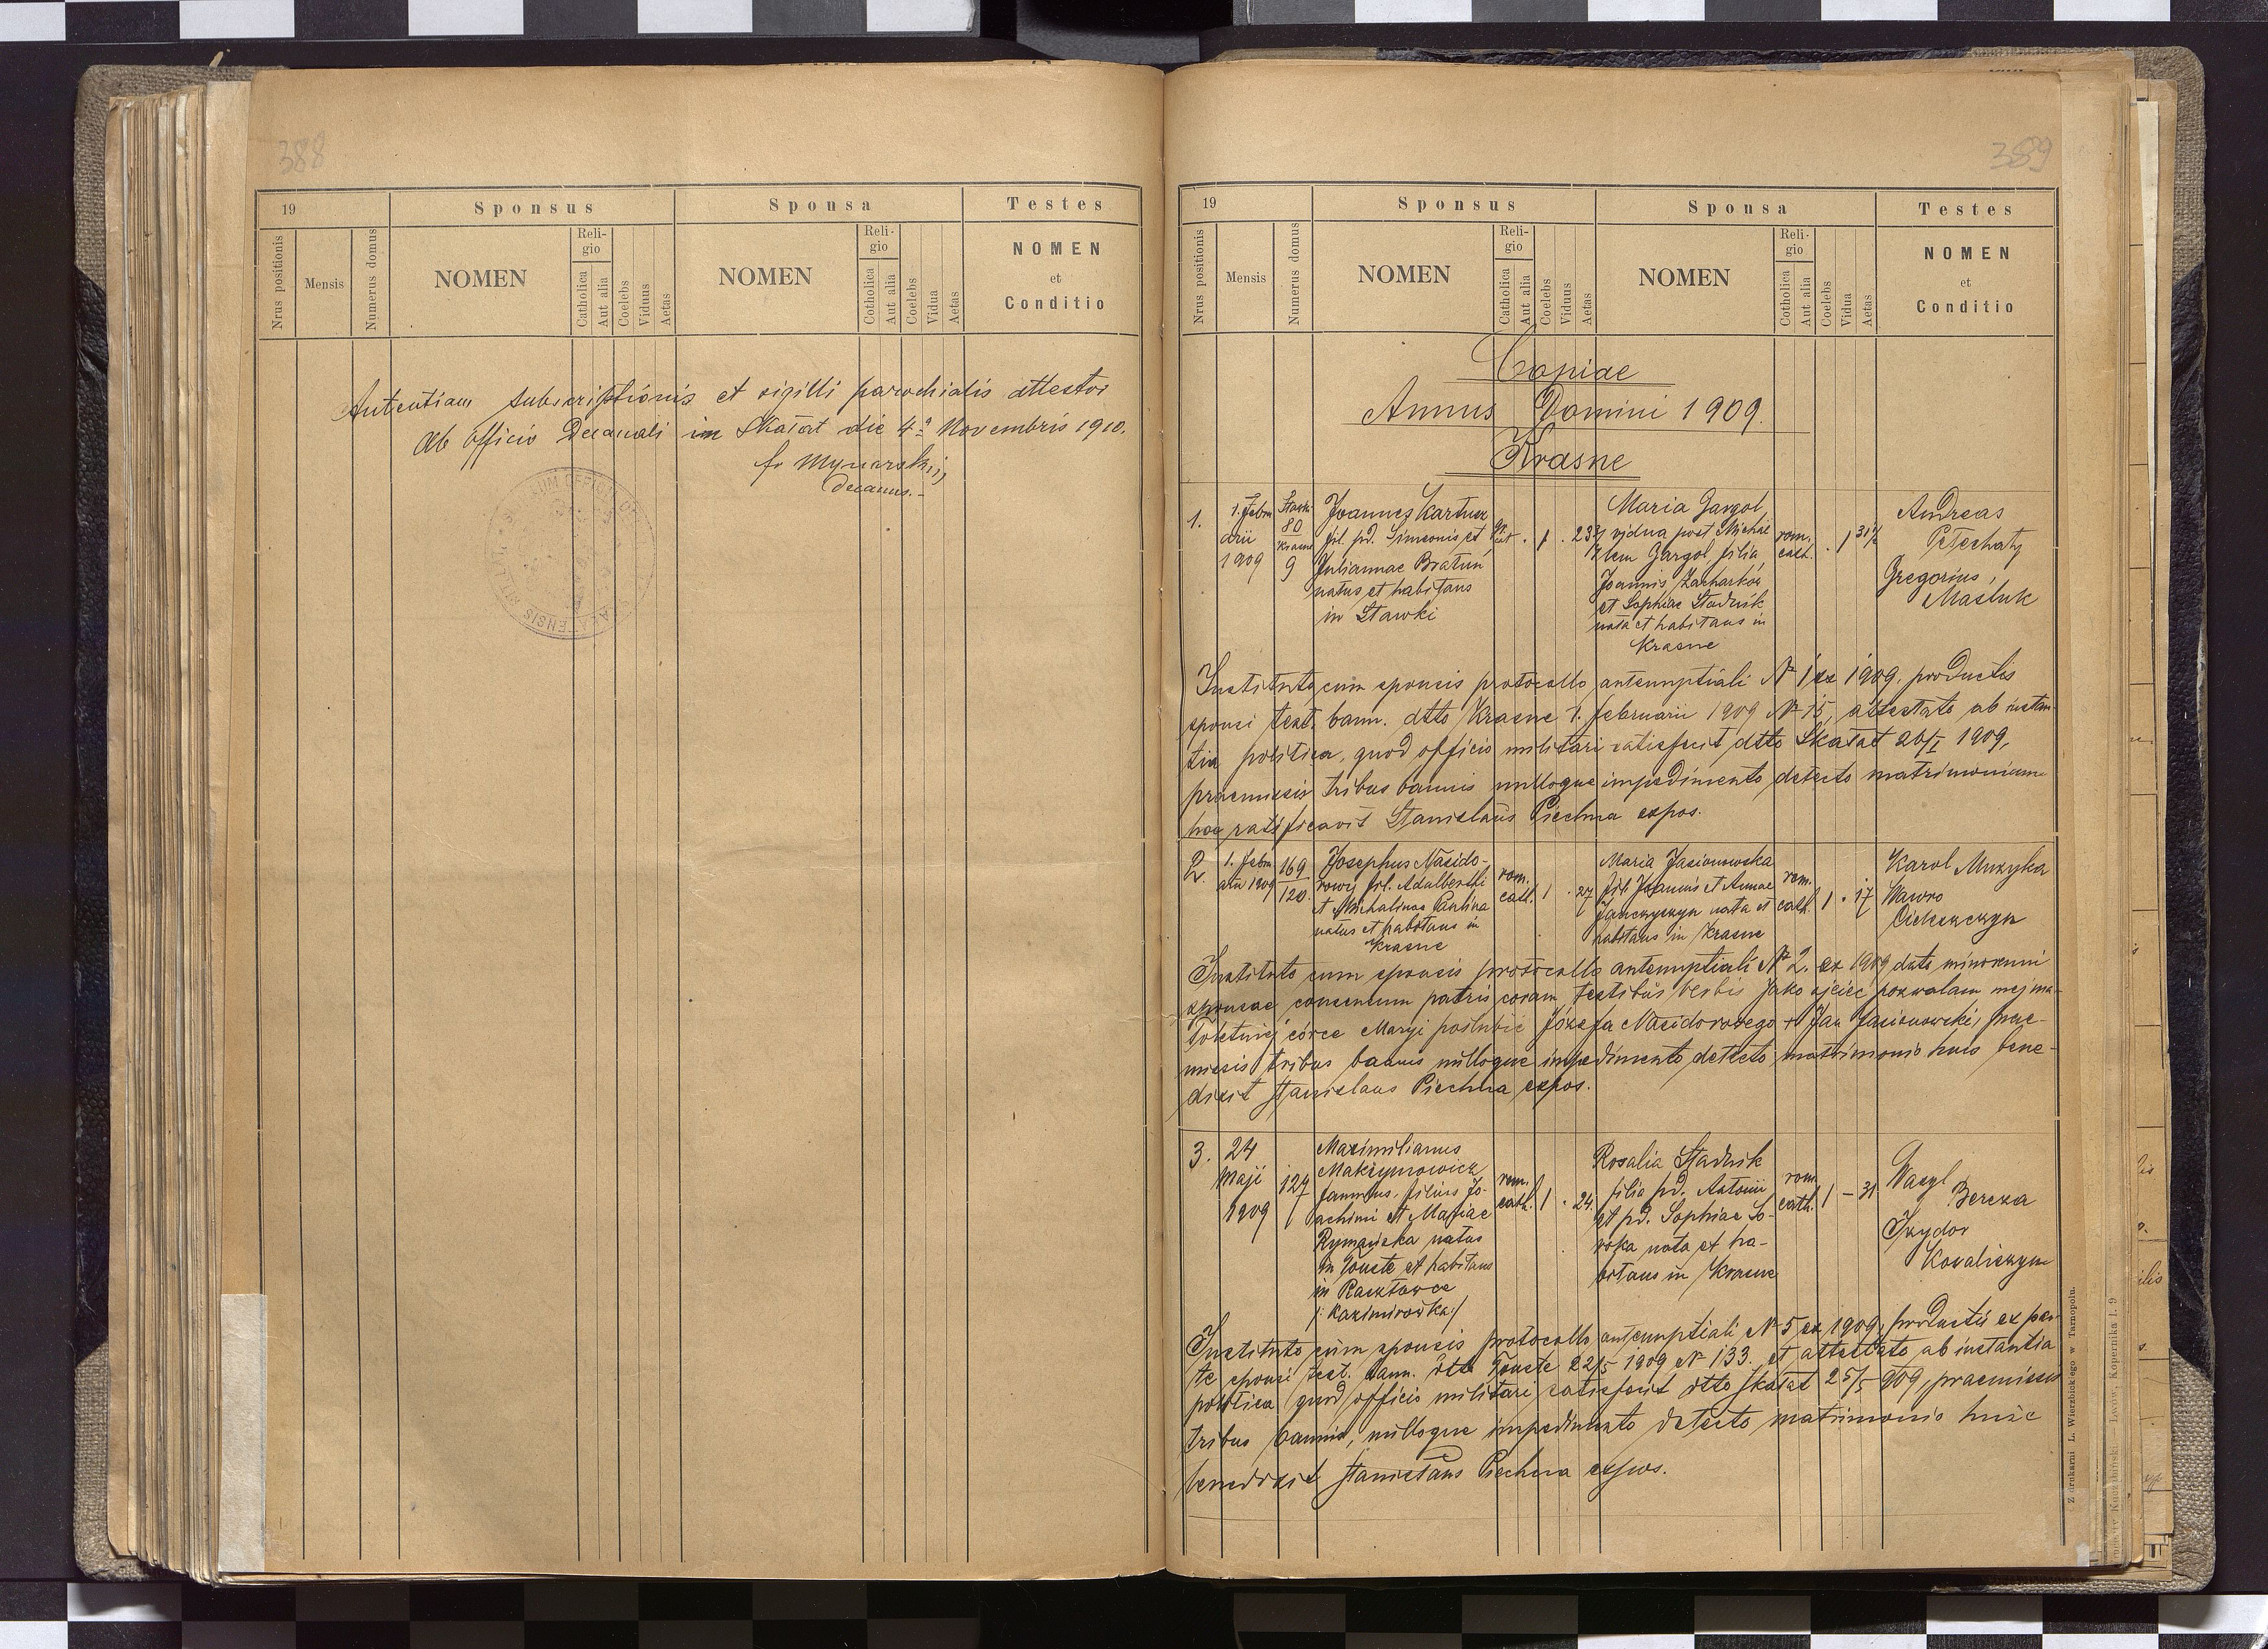 388
19
Sponsus
Sponsa
Testes
Nrus positionis
Mensis
Numerus domus
NOMEN
Reli-
gio
Catholica
Aut alia
Coelebs
Viduus
Aetas
NOMEN
Reli-
gio
Catholica
Aut alia
Coelebs
Vidua
Aetas
NOMEN
et
Conditio
Autentiam subscriptionis et sigilli parochialis attestor
Ab officio Decanali in Skałat die 4ª Novembris 1910.
Mynarski
Decanus.
389
19
Sponsus
Sponsa
Testes
Nrus positionis
Mensis
Numerus domus
NOMEN
Reli-
gio
Catholica
Aut alia
Coelebs
Viduus
Aetas
NOMEN
Reli-
gio
Catholica
Aut alia
Coelebs
Vidua
Aetas
NOMEN
et
Conditio
Copiae
Annus Domini 1909.
Krasne
1.
1. Febru
arii
1909
Stawki
80
Krasne
9
Joannes Kartusz
fil. pd. Simeonis et
Juliannae Bratun
natus et habitans
in Stawki
1
23
Maria Gargol
vidua post Michae
lem Gargol filia
Joannis Zacharków
et Sophiae Stadnik
nata et habitans in
Krasne
rom.
cath.
1
31
Andreas
Petechaty
Gregorius
Masluk
Instituto cum sponsis protocollo antenuptiali № 1 ex 1909. productis
sponsi test. bann. dtto Krasne 1. februarii 1909 № 15, attestato ab instan-
tia politica, quod officio militari satisfecit dtto Skałat 26/I 1909,
praemissis tribus bannis nulloque impedimento detecto matrimonium
hoc ratificavit Stanislaus Piechna expos.
2.
1. Febru
arii 1909
169
120.
Josephus Nasido-
rowy fil. Adalberthi
et Michalinae Paulina
natus et habitans in
Krasne
rom.
cath.
1
27
Maria Jasionowska
fil. Joannis et Annae
Janczyszyn nata et
habitans in Krasne
rom.
cath.
1
17
Karol Muzyka
Wawro
Olekszczyn
Instituto cum sponsis protocollo antenuptiali № 2. ex 1909 dato minorenni
sponsae consensum patris coram testibus verbis Jako ojciec pozwalam mej ma-
łoletniej córce Maryi poślubić Józefa Nasidorowego + Jan Jasionowski, prae-
missis tribus bannis nulloque impedimento detecto matrimonio huic bene-
dixit Stanislaus Piechna expos.
3.
24
Maji
1909
127
Maximilianus
Maksymowicz
famulus, filius Jo-
achimi et Mariae
Rymańska natus
in Touste et habitans
in Rasztowce
/: Kazimirówka :/
rom.
cath.
1
24.
Rosalia Stadnik
filia pd. Antonii
et pd. Sophiae So-
roka nata et ha-
bitans in Krasne
rom.
cath.
1
31
Wasyl
Bereza
Izydor
Kowaliszyn
Instituto cum sponsis protocollo antenuptiali № 5 ex 1909, productis ex par-
te sponsi test. bann. dtto Touste 22/5 1909 № 133. et attestato ab instantia
politica quod officio militari satisfecit dtto Skałat 25/5 909, praemissis
tribus bannis, nulloque impedimento detecto matrimonio huic
benedixit Stanislaus Piechna expos.
Z drukarni L. Wierzbickiego w Tarnopolu.
Lwów, Kopernika l. 9